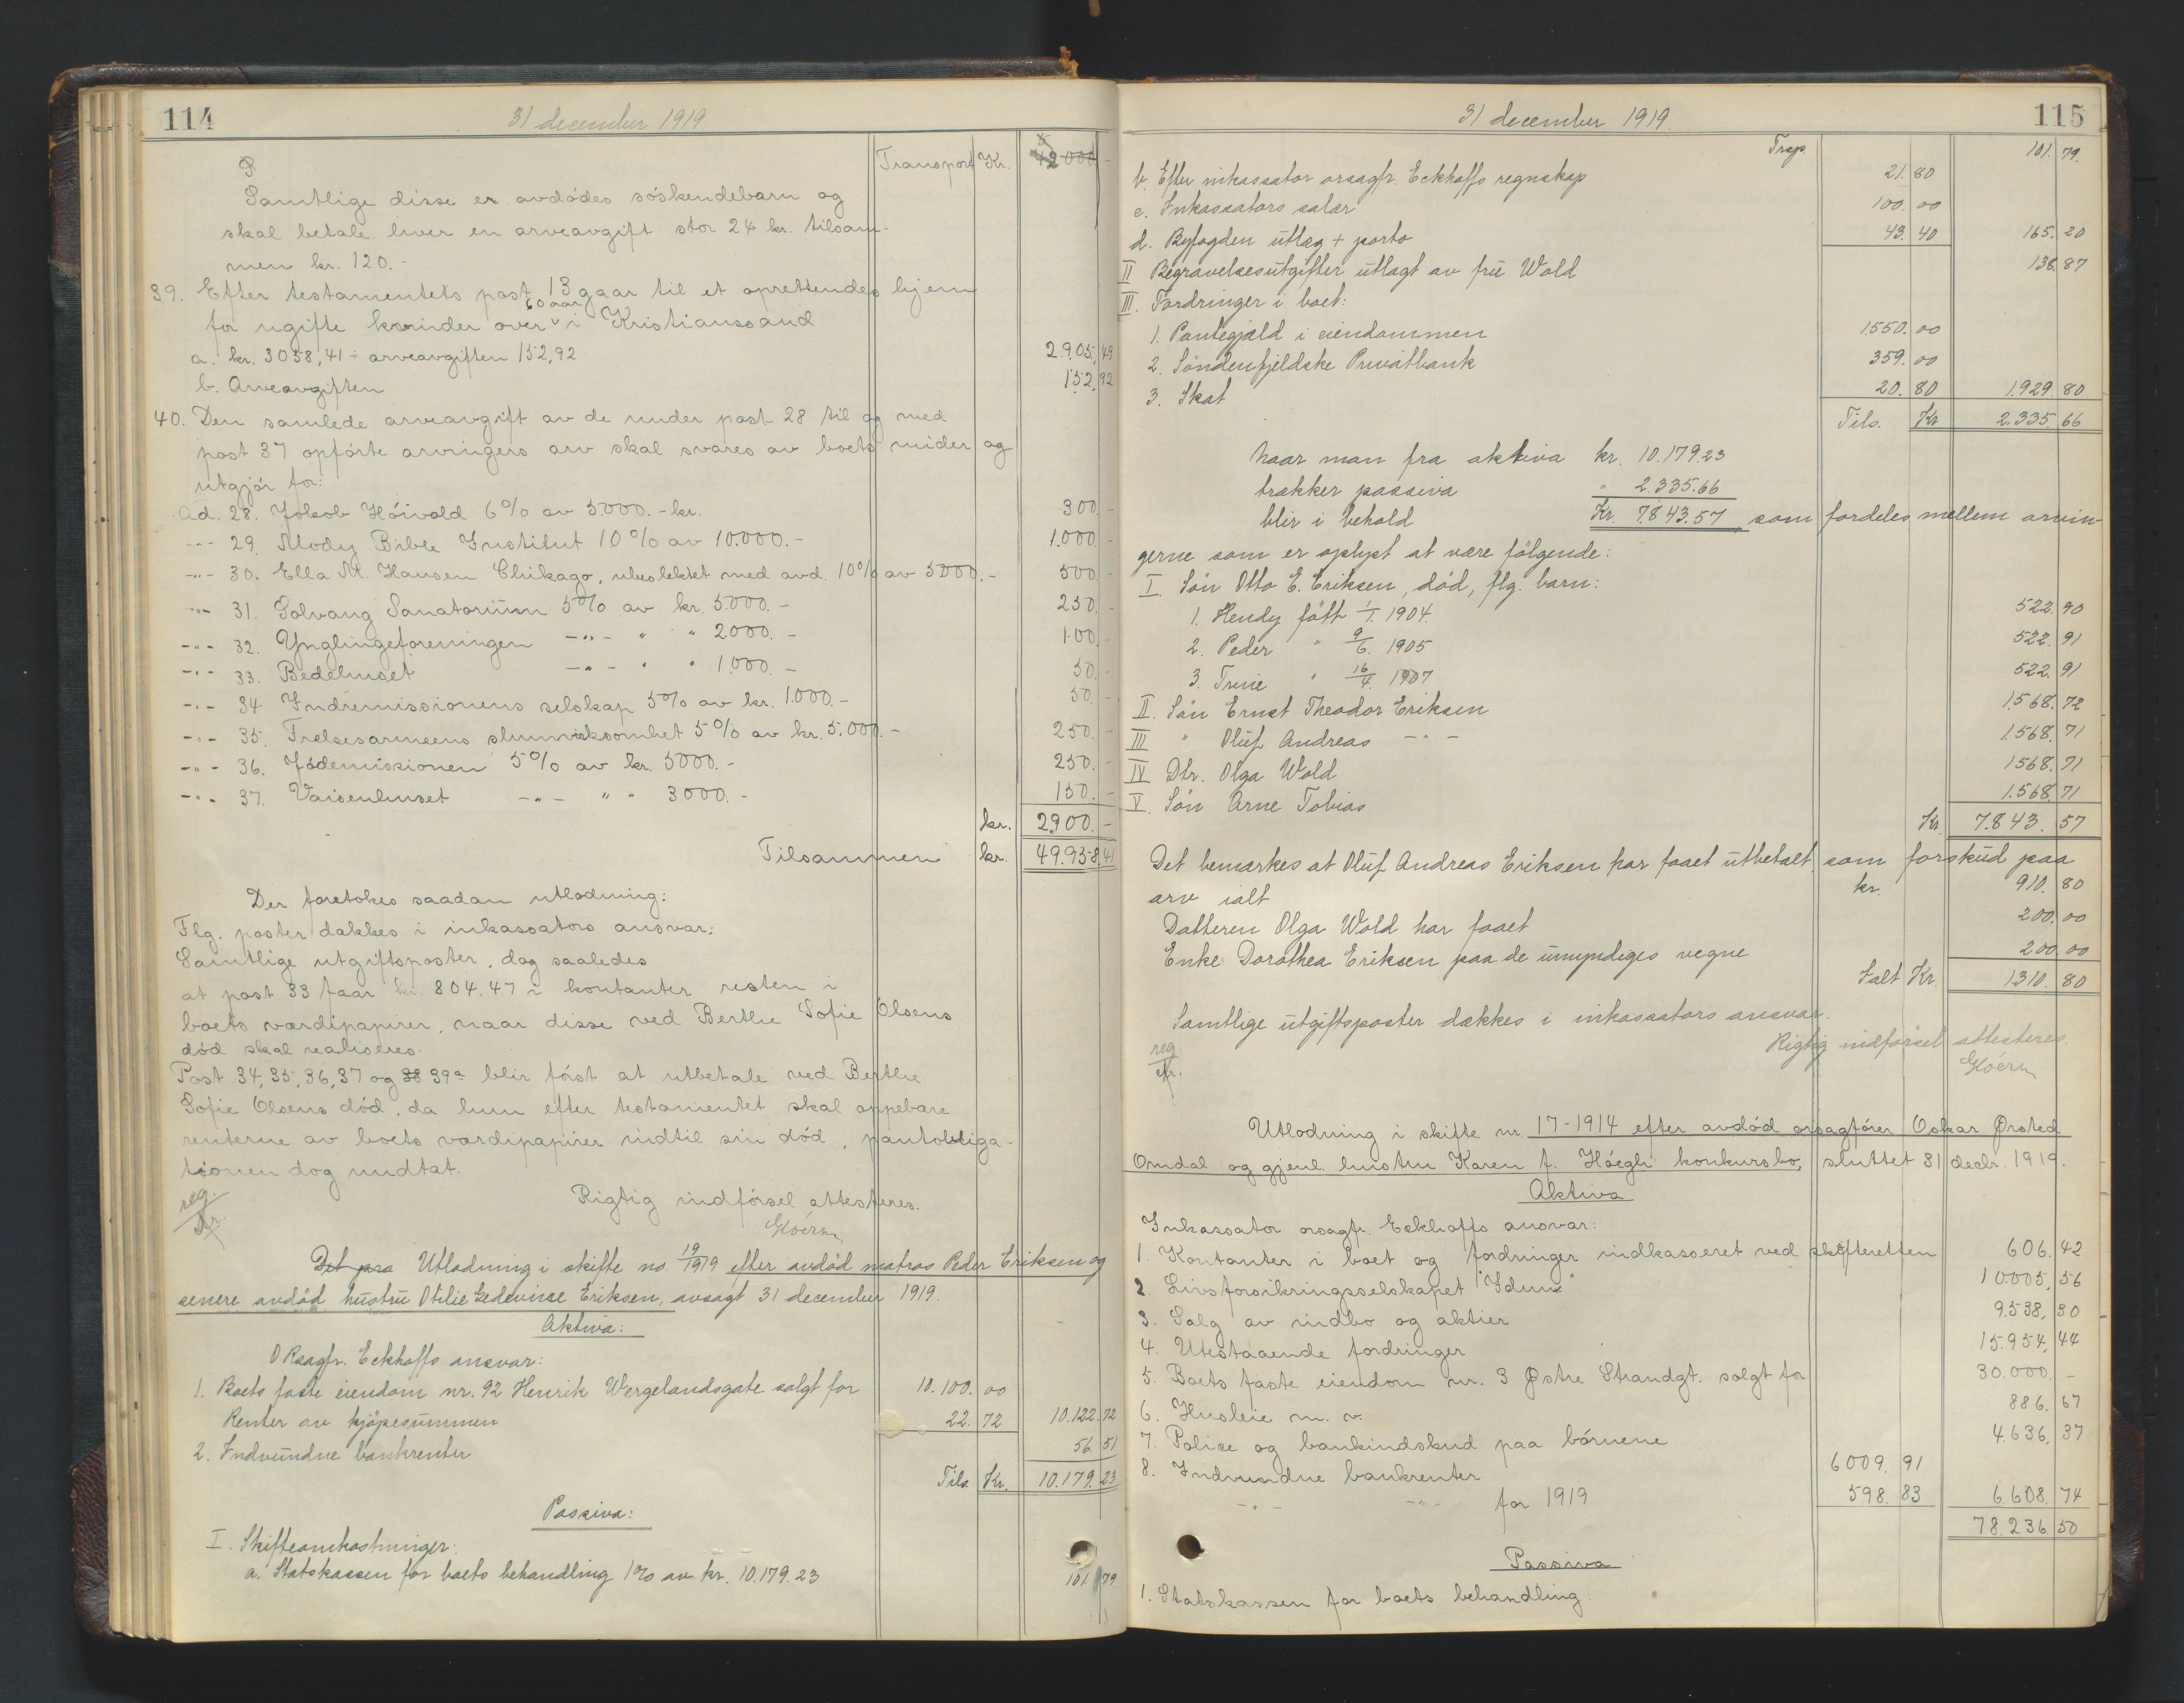 114
31 december 1919
Transport Kr. 42000 -
Samtlige disse er avdödes söskendebarn og
skal betale hver en arveavgift stor 24 kr. tilsam-
men kr. 120.-
39. Efter testamentets post 13 gaar til et oprettendes hjem
for ugifte kvinder over 60 aar i Kristianssand
a. kr. 3058,41 ÷ arveavgiften 152,92 2.905,49
b. Arveavgiften 152,92
40. Den samlede arveavgift av de under post 28 til og med
post 37 opförte arvingers arv skal svares av boets midler og
utgjör for:
Ad. 28. Jakob Höivold 6% av 5.000.- kr. 300.-
-"- 29. Mody Bible Institut 10% av 10.000.- 1.000.-
-"- 30. Ella M. Hansen Chikago, ubeslektet med avd. 10% av 5000.- 500.-
-"- 31. Solvang Sanatorium 5% av kr. 5.000.- 250.-
-"- 32. Ynglingeforeningen -"- " " 2000.- 100.-
-"- 33. Bedehuset -"- " " 1000.- 50.-
-"- 34 Indremissionens selskap 5% av kr. 1.000.- 50.-
-"- 35. Frelsesarmeens slumvirksomhet 5% av kr. 5.000.- 250.-
-"- 36. Jödemissionen 5% av kr. 5000.- 250.-
-"- 37. Vaisenhuset -"- " " 3000.- 150.-
kr. 2900.-
Tilsammen kr. 49.958,41
Der foretokes saadan utlodning:
Flg. poster dækkes i inkassators ansvar:
Samtlige utgiftsposter, dog saaledes
at post 33 faar kr. 804.47 i kontanter resten i
boets værdipapirer, naar disse ved Berthe Sofie Olsens
död skal realiseres.
Post 34, 35, 36, 37 og 38 39a blir först at utbetale ved Berthe
Sofie Olsens död, da hun efter testamentet skal oppebære
renterne av boets værdipapirer indtil sin död, pantobliga-
tionen dog undtat.
reg.
Rigtig indförsel attesteres.
Det paa Utlodning i skifte no. 19/1919 efter avdöd matros Peder Eriksen og
senere avdöd hustru Otilie Gedevine Eriksen, avsagt 31 december 1919.
Aktiva:
ORsagfr. Eckhoffs ansvar:
1. Boets faste eiendom nr. 92 Henrik Wergelandsgate solgt for 10.100.00
Renter av kjöpesummen 22.72 10.122.72
2. Indvundne bankrenter 56.51
Tils. Kr. 10.179.23
Passiva:
I. Skifteomkostninger:
a. Statskassen for boets behandling 1% av kr. 10.179.23 101 79
31 december 1919
115
Trsp. 101.79.
b. Efter inkassator orsagfr. Eckhoffs regnskap 21.80
c. Inkassators salær 100.00
d. Byfogden utlæg + porto 43.40 165.20
II Begravelsesutgifter utlagt av fru Wold 138.87
III. Fordringer i boet:
1. Pantegjæld i eiendommen 1550.00
2. Søndenfjeldske Privatbank 359.00
3. Skat 20.80 1929.80
Tils. Kr 2.335.66
Naar man fra aktiva kr. 10.179.23
trækker passiva " 2.335.66
blir i behold Kr. 7.843.57 som fordeles mellem arvin-
gerne som er oplyst at være følgende:
I. Sön Otto E. Eriksen, död, flg. barn:
1. Hendy født 1/1. 1904. 522.90
2. Peder " 9/6. 1905 522.91
3. Trine " 16/4. 1907 522.91
II. Sön Ernst Theodor Eriksen 1.568.72
III " Oluf Andreas -"- 1568.71
IV Dtr. Olga Wold 1568.71
V. Sön Arne Tobias 1.568.71
Kr. 7.843.57
Det bemærkes at Oluf Andreas Eriksen har faaet utbetalt som forskud paa
arv ialt kr. 910.80
Datteren Olga Wold har faaet 200.00
Enke Dorothea Eriksen paa de umyndiges vegne 200.00
Ialt Kr. 1310.80
Samtlige utgiftsposter dækkes i inkassators ansvar.
reg.
Rigtig indførsel attesteres.
Utlodning i skifte nr. 17-1914 efter avdöd orsagförer Oskar Ørsted
Omdal og gjenl. hustru Karen f. Höegh konkursbo, sluttet 31 decbr. 1919.
Aktiva
Inkassator orsagfr. Eckhoffs ansvar:
1. Kontanter i boet og fordringer indkasseret ved skifteretten 606.42
2. Livsforsikringsselskapet "Idun" 10005,56
3. Salg av indbo og aktier 9.538,30
4. Utestaaende fordringer 15.954,44
5. Boets faste eiendom nr. 3 Østre Strandgt. solgt for 30.000.-
6. Husleie m. v. 886.67
7. Police og bankindskud paa börnene 4.636,37
8. Indvundne bankrenter 6009.91
-"- -"- for 1919 598.83 6.608.74
78.236.50
Passiva
1. Statskassen for boets behandling: